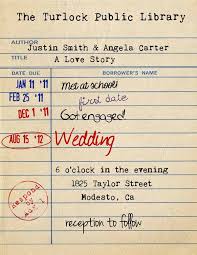 The Turlock Public Library
AUTHOR
Justin Smith & Angela Carter
TITLE
A Love Story
DATE DUE
BORROWER'S NAME
JAN 11 '11
Met at school!
FEB 25 '11
first date
DEC 1 '11
Got engaged!
AUG 15 '12
Wedding
6 o'clock in the evening
1825 Taylor Street
Modesto, Ca
respond by
reception to follow